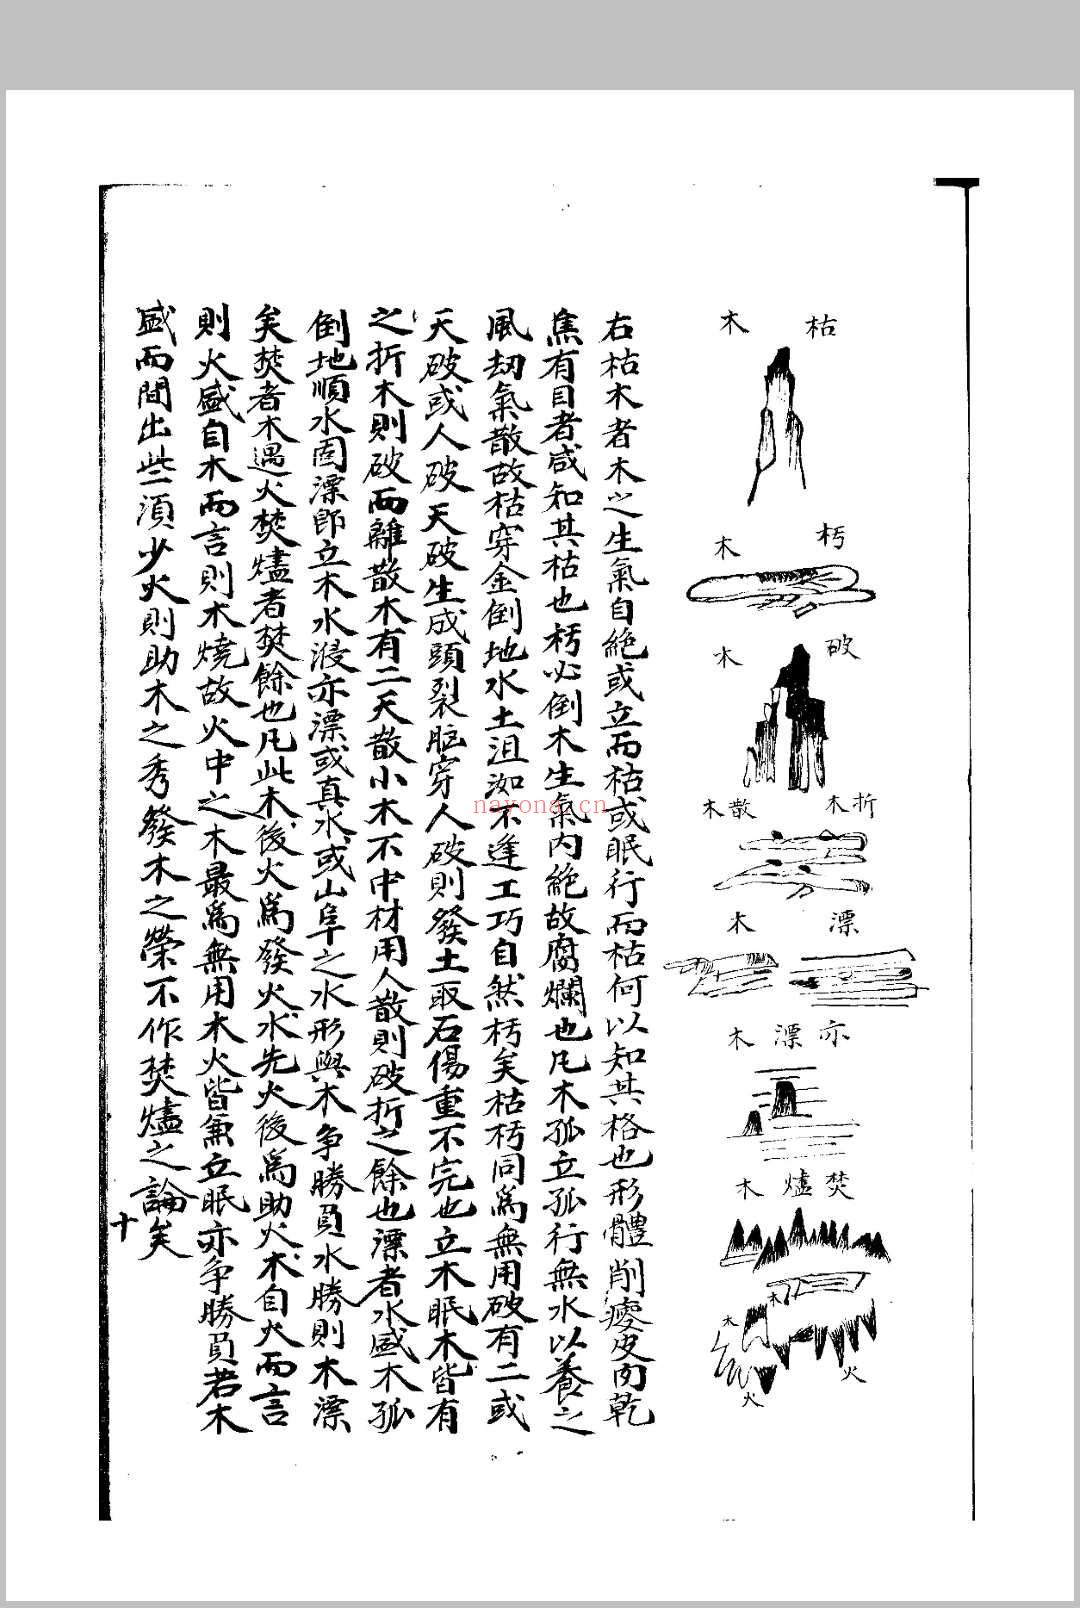 枯木
朽木
破木
折木
散木
漂木
亦漂木
焚爐木
木
木
火
火
右枯木者木之生氣自絕或立而枯或眠行而枯何以知其格也形體削瘦皮肉乾
焦有目者咸知其枯也朽必倒木生氣內絕故腐爛也凡木孤立孤行無水以養之
風刼氣散故枯穿金倒地水土沮洳不逢工巧自然朽矣枯朽同為無用破有二或
天破或人破天破生成頭裂脏穿人破則發土取石傷重不完也立木眠木皆有
之折木則破而離散木有二天散小木不中材用人散則破折之餘也漂者水盛木孤
倒地順水固漂即立木水浸亦漂或真水或山阜之水形與木爭勝負水勝則木漂
矣焚者木遇火焚爐者焚餘也凡此木後火為發火水先火後為助火木自火而言
則火盛自木而言則木燒故火中之木最為無用木火皆兼立眠亦爭勝負若木
盛而間出些須少火則助木之秀發木之榮不作焚爐之論矣
十
nayona.cn